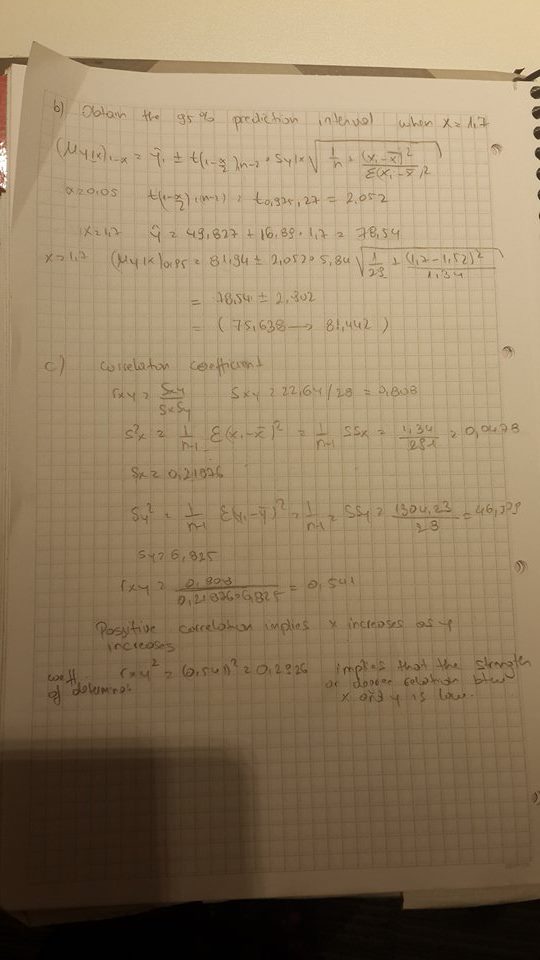 b) Obtain the 95% prediction interval when x = 1,7
(μy|x)1-α = ŷi ± t(1-α/2),n-2 * Sy|x √(1/n + (xi - x̄)²/Σ(xi - x̄)²)
α=0,05 t(1-α/2),(n-2) = t0,975,27 = 2,052
x=1,7 ŷ = 49,827 + 16,89 · 1,7 = 78,54
x = 1,7 (μy|x)0,95 = 81,94 ± 2,052 * 5,84 √(1/29 + (1,7-1,52)²/1,34)
= 78,54 ± 2,902
= (75,638 → 81,442)
c) Correlation coefficient
rxy = Sxy/SxSy Sxy = 22,64/28 = 0,808
S²x = 1/n-1 Σ(xi - x̄)² = 1/n-1 SSx = 1,34/29-1 = 0,0478
Sx = 0,21876
Sy² = 1/n-1 Σ(yi - ȳ)² = 1/n-1 = SSy = 1304,23/28 = 46,579
Sy = 6,825
rxy = 0,808/0,21876*6,825 = 0,541
Possitive correlation implies x increases as y
increases
coeff of determinat rxy² = (0,541)² = 0,2926 implies that the strength
or degree relation btw
x and y is low.